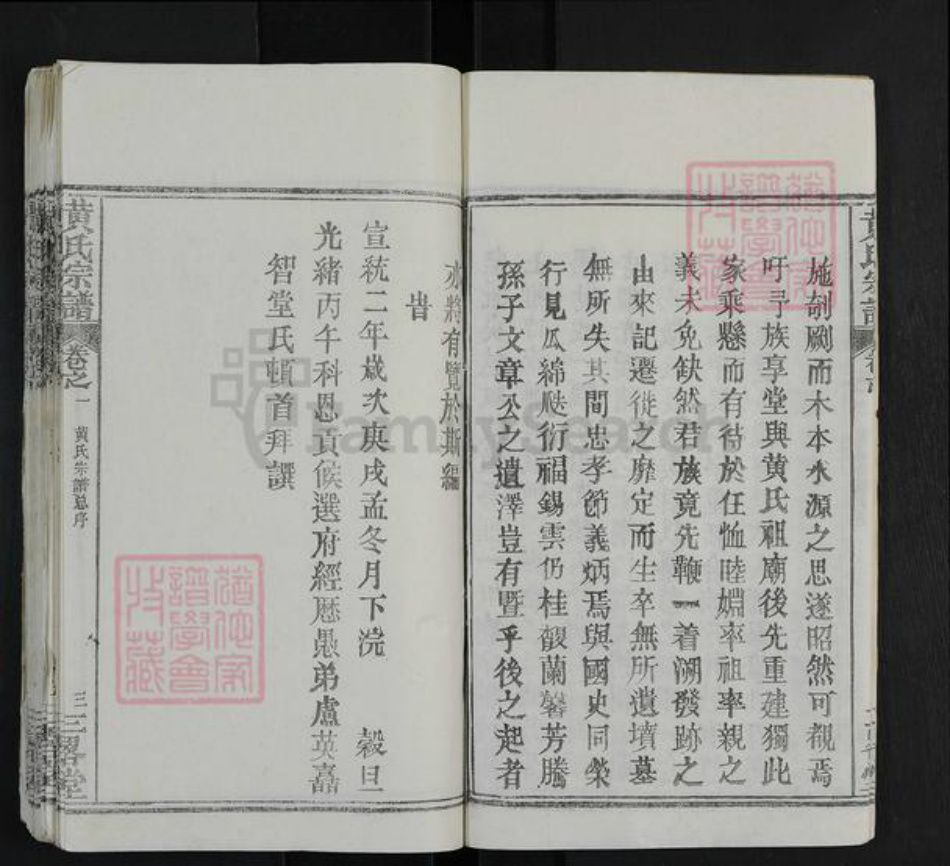 施剞劂而木本水源之思遂昭然可覩焉
吁予族享堂與黄氏祖廟後先重建獨此
家乘懸而有待於任恤睦婣率祖率親之
義未免缺然君族竟先鞭一着溯發跡之
由來記遷徙之靡定而生卒無所遺墳墓
無所失其間忠孝節義炳焉與國史同榮
行見瓜綿瓞衍福錫雲仍桂馥蘭馨芳騰
孫子文章公之遺澤豈有暨乎後之起者
亦將有覽於斯編
旹
宣統二年歲次庚戌孟冬月下浣 穀旦
光緒丙午科恩貢候選府經歷愚弟盧英譶
智堂氏頓首拜譔
黄氏宗譜 卷之一 黄氏宗譜總序 三 三畧堂
黄氏宗譜
FamilySearch